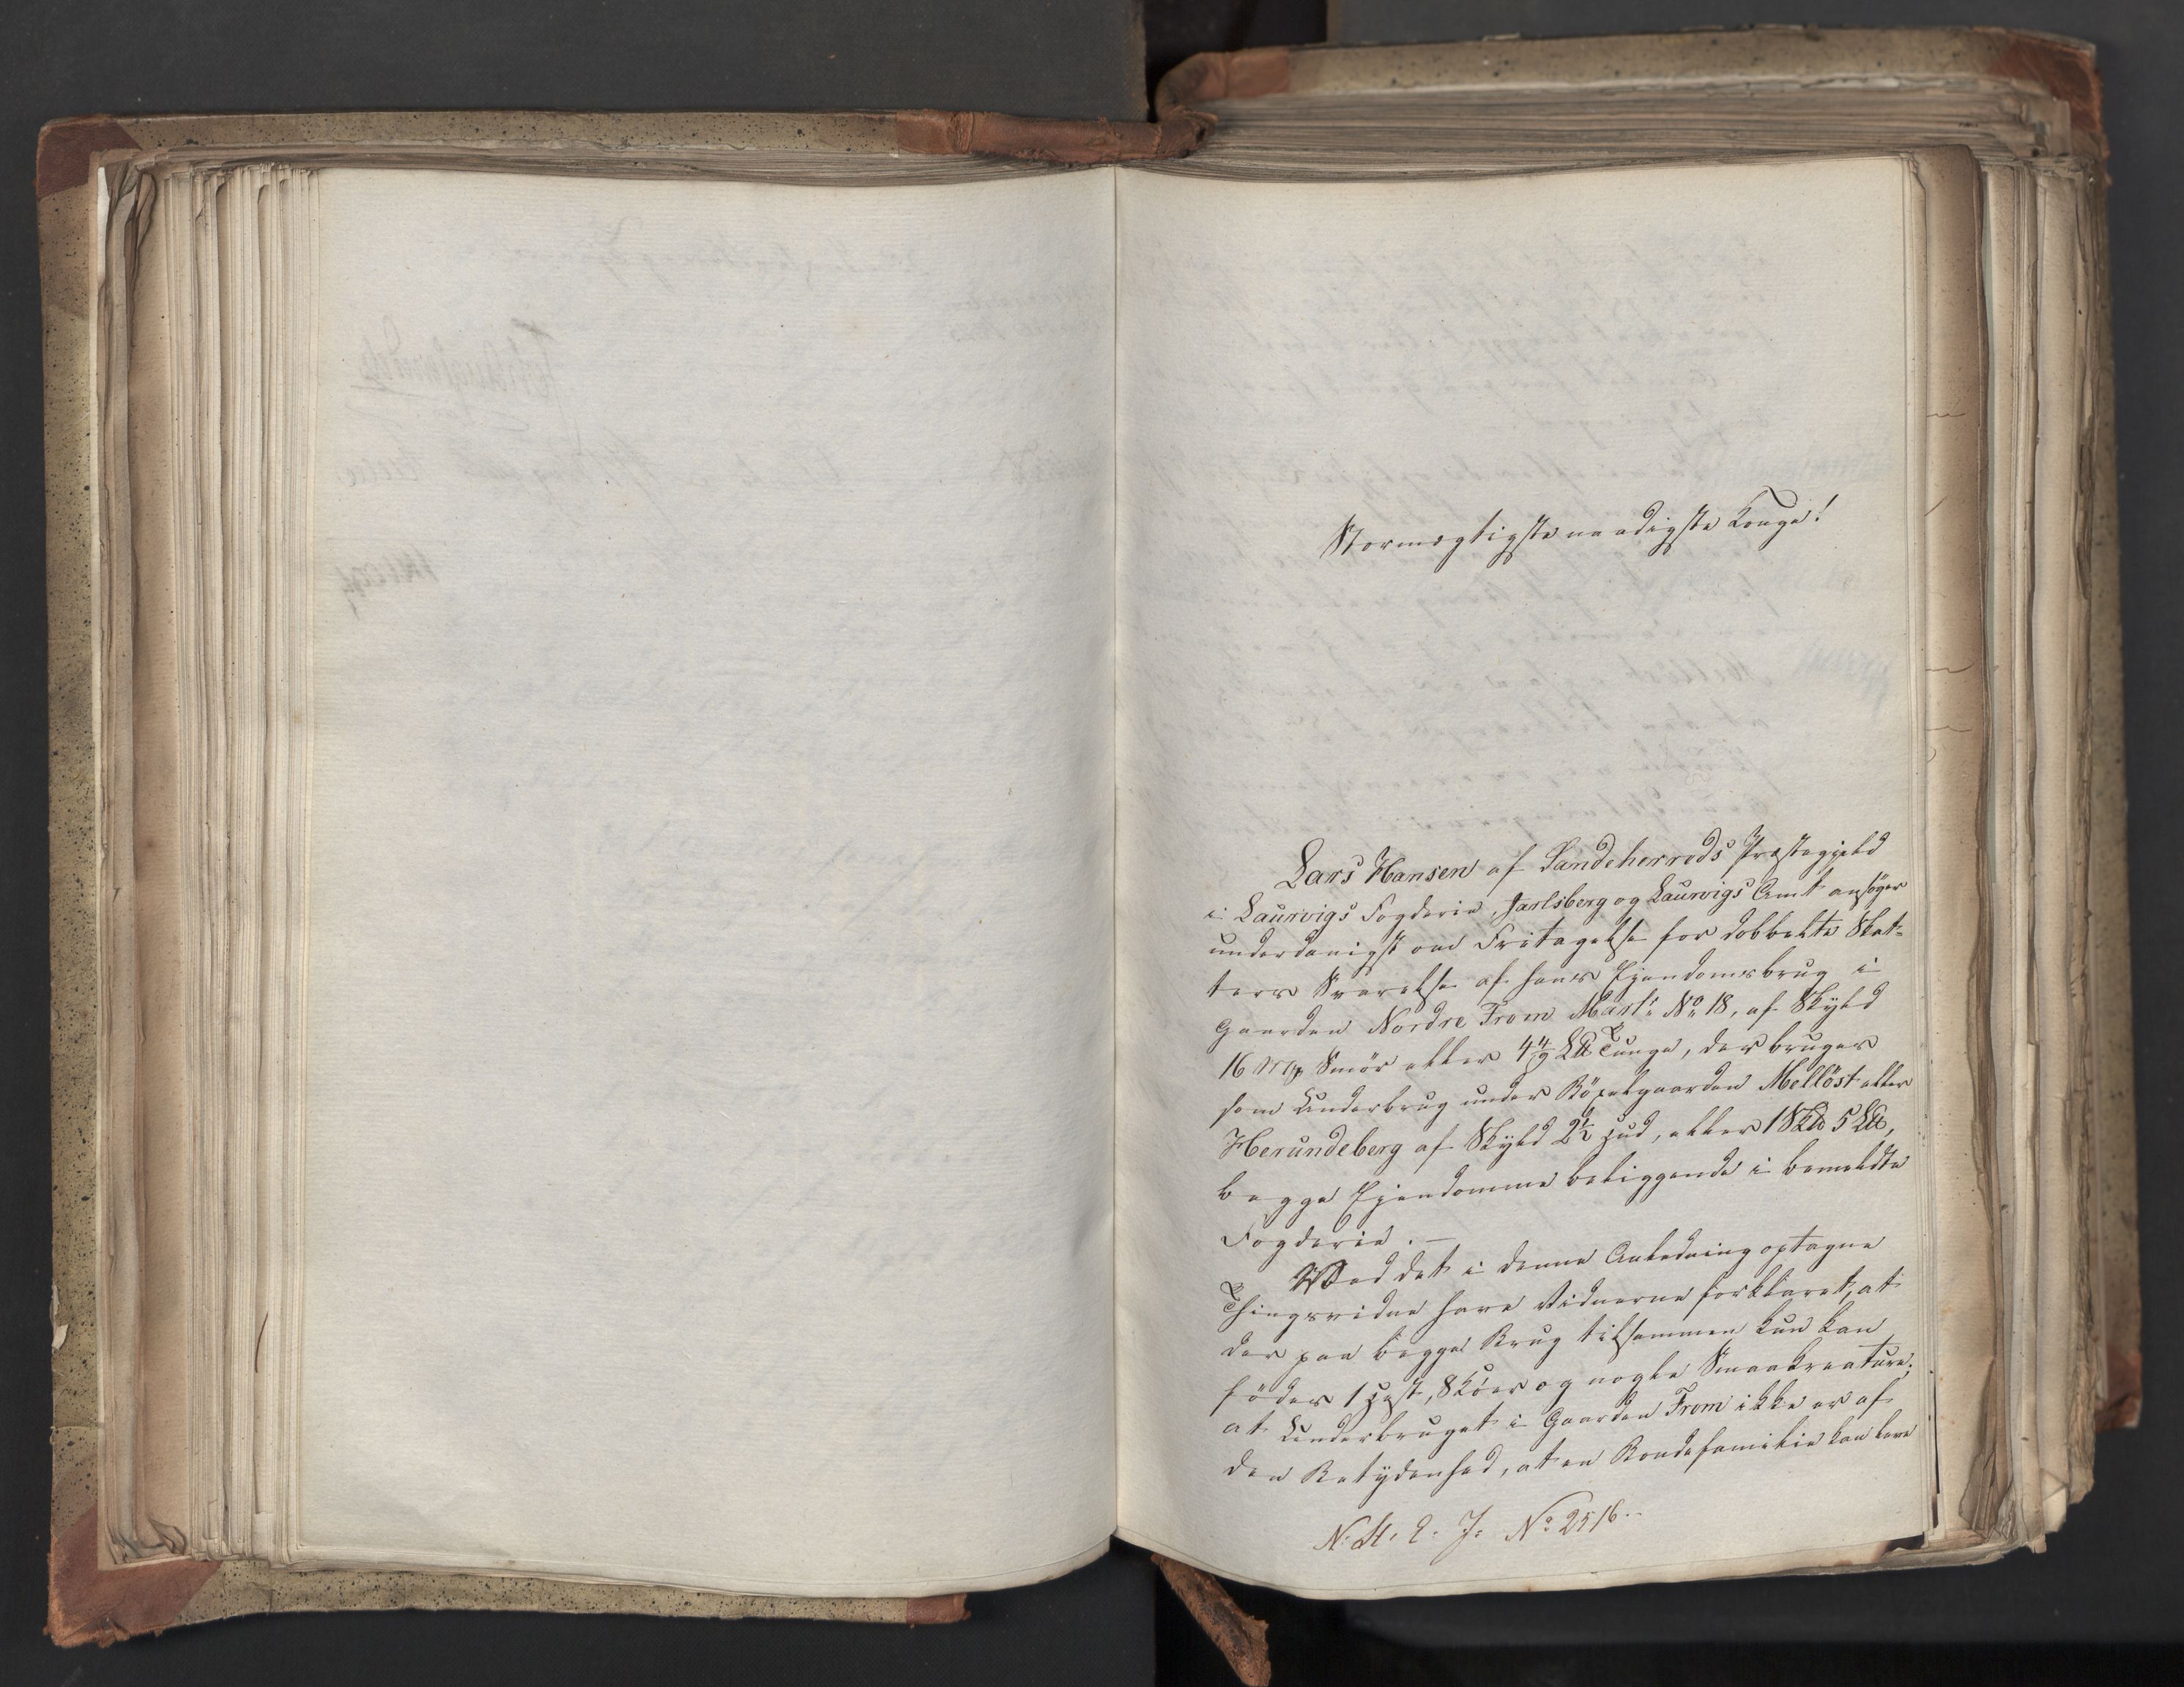 Stormægtigste naadigste Konge!
Lars Hansen af Sandeherreds Præstegjeld
i Laurvigs Fogderie, Jarlsberg og Laurvigs Amt ansöger
underdanigst om Fritagelse for dobbelte Skat-
ters Svarelse af hans Ejendomsbrug i
Gaarden Nordre From Matr: No 18, af Skyld
16 Mrp Smör eller 4 4/9 L℔ Tunge, der bruges
som Underbrug under Böpælgaarden Mellöst eller
Herundeberg af Skyld 2 1/2 Hud, eller 1 Sk℔ 5 L℔,
begge Ejendomme beliggende i bemeldte
Fogderie. —
Ved det i denne Anledning optagne
Thingsvidne have Vidnerne forklaret, at
der paa begge Brug tilsammen kun kan
födes 1 Hest, 8 Köer og nogle Smaakreature;
at Underbruget i Gaarden From ikke er af
den Betydenhed, at en Bondefamilie kan leve
N: H: E. J: No 2516.